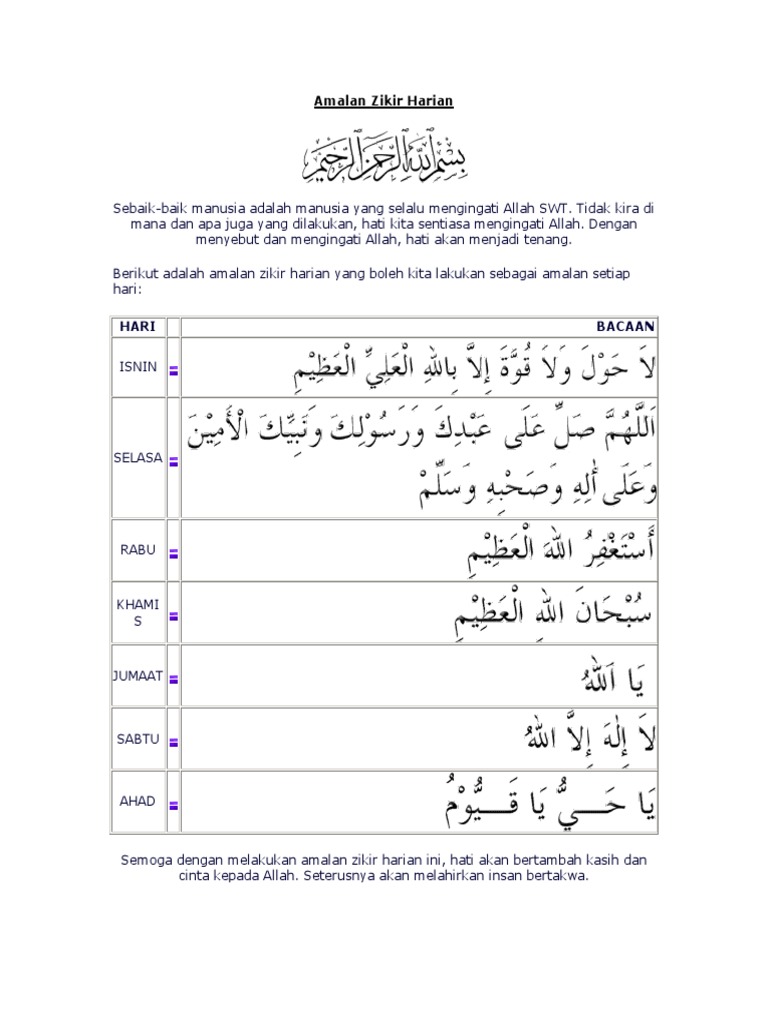 Amalan Zikir Harian
بِسْمِ اللَّهِ الرَّحْمَنِ الرَّحِيمِ
Sebaik-baik manusia adalah manusia yang selalu mengingati Allah SWT. Tidak kira di
mana dan apa juga yang dilakukan, hati kita sentiasa mengingati Allah. Dengan
menyebut dan mengingati Allah, hati akan menjadi tenang.
Berikut adalah amalan zikir harian yang boleh kita lakukan sebagai amalan setiap
hari:
HARI BACAAN
ISNIN = لاَ حَوْلَ وَلاَ قُوَّةَ إِلاَّ بِاللهِ الْعَلِيِّ الْعَظِيْمِ
SELASA = اَللَّهُمَّ صَلِّ عَلَى عَبْدِكَ وَرَسُوْلِكَ وَنَبِيِّكَ الْأَمِيْنَ
وَعَلَى أٰلِهِ وَصَحْبِهِ وَسَلِّمْ
RABU = أَسْتَغْفِرُ اللهَ الْعَظِيْمِ
KHAMI
S = سُبْحَانَ اللهِ الْعَظِيْمِ
JUMAAT = يَا اَللهُ
SABTU = لاَ إِلٰهَ إِلاَّ اللهُ
AHAD = يَا حَـــيُّ يَا قَـــيُّوْمُ
Semoga dengan melakukan amalan zikir harian ini, hati akan bertambah kasih dan
cinta kepada Allah. Seterusnya akan melahirkan insan bertakwa.